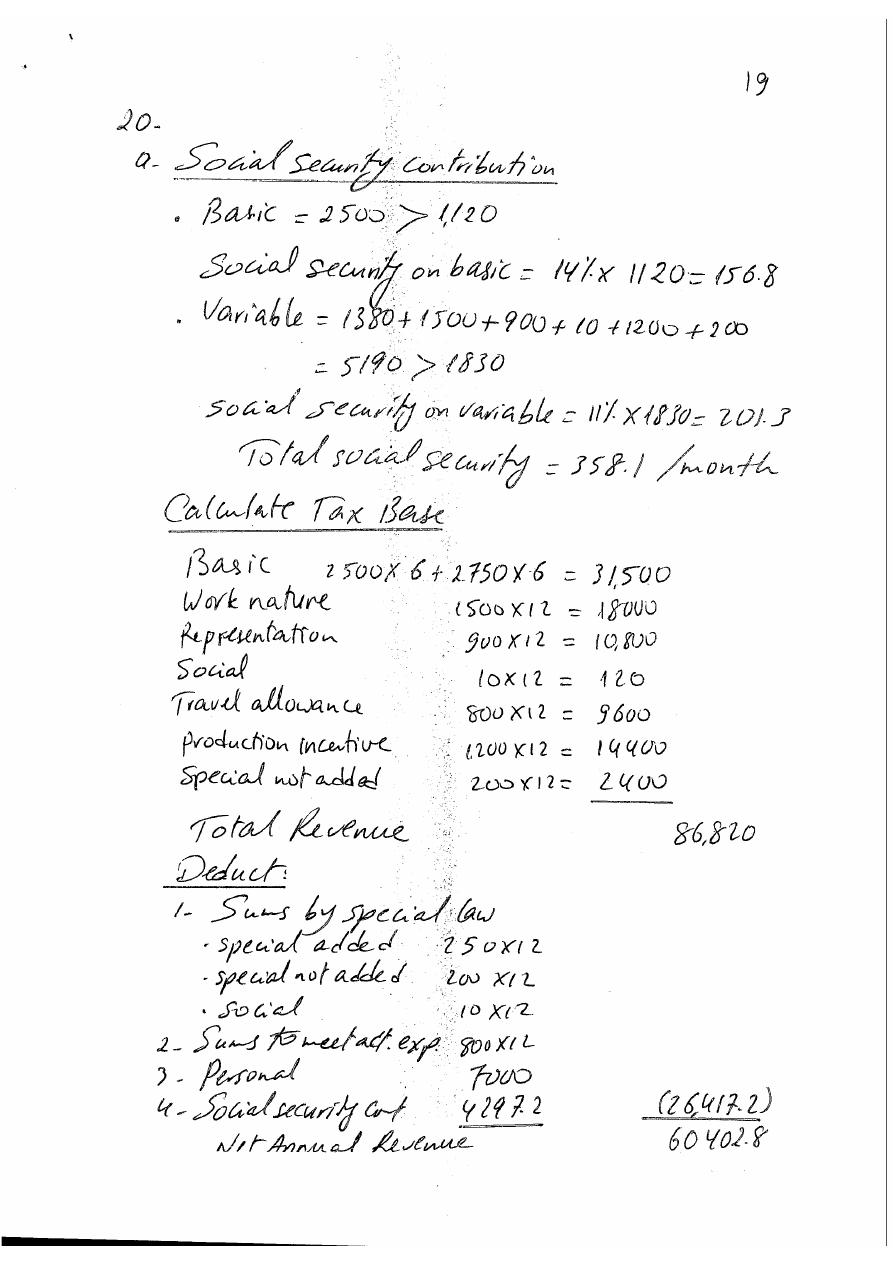 19
20-
a- Social security contribution
. Basic = 2500 > 1,120
Social security on basic = 14% x 1120 = 156.8
. Variable = 1380 + 1500 + 900 + 10 + 1200 + 200
= 5190 > 1830
social security on variable = 11% x 1830 = 201.3
Total social security = 358.1 /month
Calculate Tax Base
Basic 2500 x 6 + 2750 x 6 = 31,500
Work nature 1500 x 12 = 18000
Representation 900 x 12 = 10,800
Social 10 x 12 = 120
Travel allowance 800 x 12 = 9600
production incentive 1,200 x 12 = 14400
special not added 200 x 12 = 2400
Total Revenue 86,820
Deduct:
1- Sums by special law
. special added 250 x 12
- special not added 200 x 12
. Social 10 x 12
2- Sums to meet act. exp. 800 x 12
3- Personal 7000
4- Social security cont 4297.2 (26,417.2)
Net Annual Revenue 60402.8